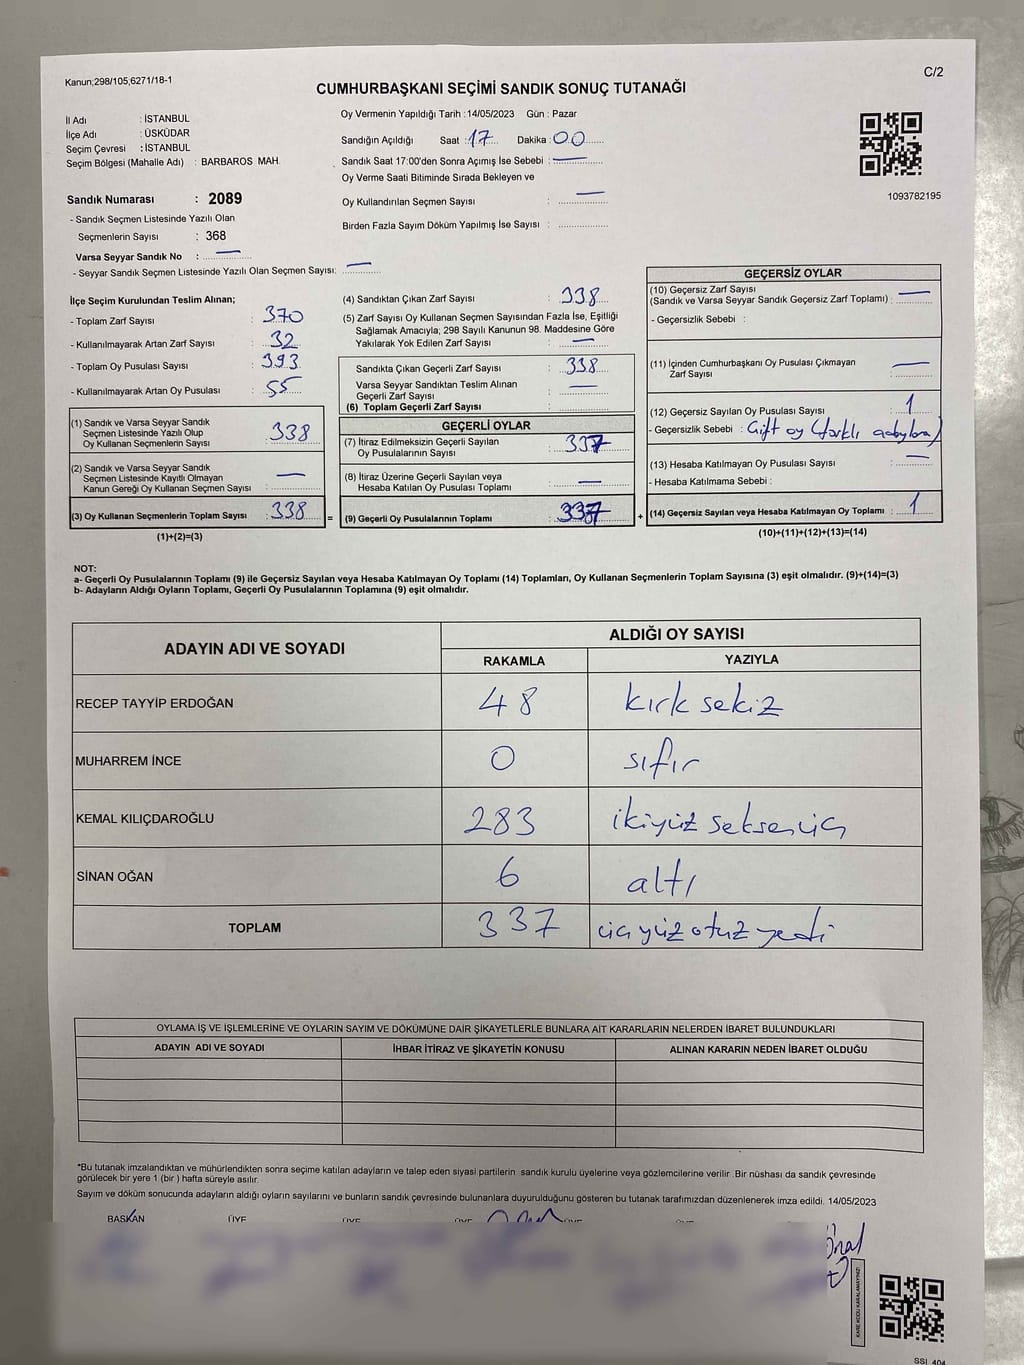 Kanun;298/105,6271/18-1
C/2
CUMHURBAŞKANI SEÇİMİ SANDIK SONUÇ TUTANAĞI
İl Adı : İSTANBUL
İlçe Adı : ÜSKÜDAR
Seçim Çevresi : İSTANBUL
Seçim Bölgesi (Mahalle Adı) : BARBAROS MAH.
Sandık Numarası : 2089
- Sandık Seçmen Listesinde Yazılı Olan
Seçmenlerin Sayısı : 368
Varsa Seyyar Sandık No : —
- Seyyar Sandık Seçmen Listesinde Yazılı Olan Seçmen Sayısı: —
Oy Vermenin Yapıldığı Tarih : 14/05/2023 Gün : Pazar
Sandığın Açıldığı Saat : 17 Dakika : 00
Sandık Saat 17:00'den Sonra Açımış İse Sebebi : —
Oy Verme Saati Bitiminde Sırada Bekleyen ve
Oy Kullandırılan Seçmen Sayısı : —
Birden Fazla Sayım Döküm Yapılmış İse Sayısı :
1093782195
İlçe Seçim Kurulundan Teslim Alınan;
- Toplam Zarf Sayısı : 370
- Kullanılmayarak Artan Zarf Sayısı : 32
- Toplam Oy Pusulası Sayısı : 393
- Kullanılmayarak Artan Oy Pusulası : 55
(1) Sandık ve Varsa Seyyar Sandık
Seçmen Listesinde Yazılı Olup
Oy Kullanan Seçmenlerin Sayısı : 338
(2) Sandık ve Varsa Seyyar Sandık
Seçmen Listesinde Kayıtlı Olmayan
Kanun Gereği Oy Kullanan Seçmen Sayısı : —
(3) Oy Kullanan Seçmenlerin Toplam Sayısı : 338
(1)+(2)=(3)
(4) Sandıktan Çıkan Zarf Sayısı : 338
(5) Zarf Sayısı Oy Kullanan Seçmen Sayısından Fazla İse, Eşitliği
Sağlamak Amacıyla; 298 Sayılı Kanunun 98. Maddesine Göre
Yakılarak Yok Edilen Zarf Sayısı : —
Sandıkta Çıkan Geçerli Zarf Sayısı : 338
Varsa Seyyar Sandıktan Teslim Alınan
Geçerli Zarf Sayısı : —
(6) Toplam Geçerli Zarf Sayısı :
GEÇERLİ OYLAR
(7) İtiraz Edilmeksizin Geçerli Sayılan
Oy Pusulalarının Sayısı : 337
(8) İtiraz Üzerine Geçerli Sayılan veya
Hesaba Katılan Oy Pusulası Toplamı : —
= (9) Geçerli Oy Pusulalarının Toplamı : 337 +
GEÇERSİZ OYLAR
(10) Geçersiz Zarf Sayısı
(Sandık ve Varsa Seyyar Sandık Geçersiz Zarf Toplamı) : —
- Geçersizlik Sebebi :
(11) İçinden Cumhurbaşkanı Oy Pusulası Çıkmayan
Zarf Sayısı : —
(12) Geçersiz Sayılan Oy Pusulası Sayısı : 1
- Geçersizlik Sebebi : Çift oy (farklı adaylara)
(13) Hesaba Katılmayan Oy Pusulası Sayısı : —
- Hesaba Katılmama Sebebi :
(14) Geçersiz Sayılan veya Hesaba Katılmayan Oy Toplamı : 1
(10)+(11)+(12)+(13)=(14)
NOT:
a- Geçerli Oy Pusulalarının Toplamı (9) ile Geçersiz Sayılan veya Hesaba Katılmayan Oy Toplamı (14) Toplamları, Oy Kullanan Seçmenlerin Toplam Sayısına (3) eşit olmalıdır. (9)+(14)=(3)
b- Adayların Aldığı Oyların Toplamı, Geçerli Oy Pusulalarının Toplamına (9) eşit olmalıdır.
ADAYIN ADI VE SOYADI ALDIĞI OY SAYISI
RAKAMLA YAZIYLA
RECEP TAYYİP ERDOĞAN 48 kırk sekiz
MUHARREM İNCE 0 sıfır
KEMAL KILIÇDAROĞLU 283 ikiyüz seksen üç
SİNAN OĞAN 6 altı
TOPLAM 337 üç yüz otuz yedi
OYLAMA İŞ VE İŞLEMLERİNE VE OYLARIN SAYIM VE DÖKÜMÜNE DAİR ŞİKAYETLERLE BUNLARA AİT KARARLARIN NELERDEN İBARET BULUNDUKLARI
ADAYIN ADI VE SOYADI İHBAR İTİRAZ VE ŞİKAYETİN KONUSU ALINAN KARARIN NEDEN İBARET OLDUĞU
*Bu tutanak imzalandıktan ve mühürlendikten sonra seçime katılan adayların ve talep eden siyasi partilerin sandık kurulu üyelerine veya gözlemcilerine verilir .Bir nüshası da sandık çevresinde
görülecek bir yere 1 (bir ) hafta süreyle asılır.
Sayım ve döküm sonucunda adayların aldığı oyların sayılarını ve bunların sandık çevresinde bulunanlara duyurulduğunu gösteren bu tutanak tarafımızdan düzenlenerek imza edildi. 14/05/2023
BAŞKAN ÜYE ÜYE ÜYE ÜYE ÜYE
Önal
KARE KODU KARALAMAYINIZ!
SSI 404